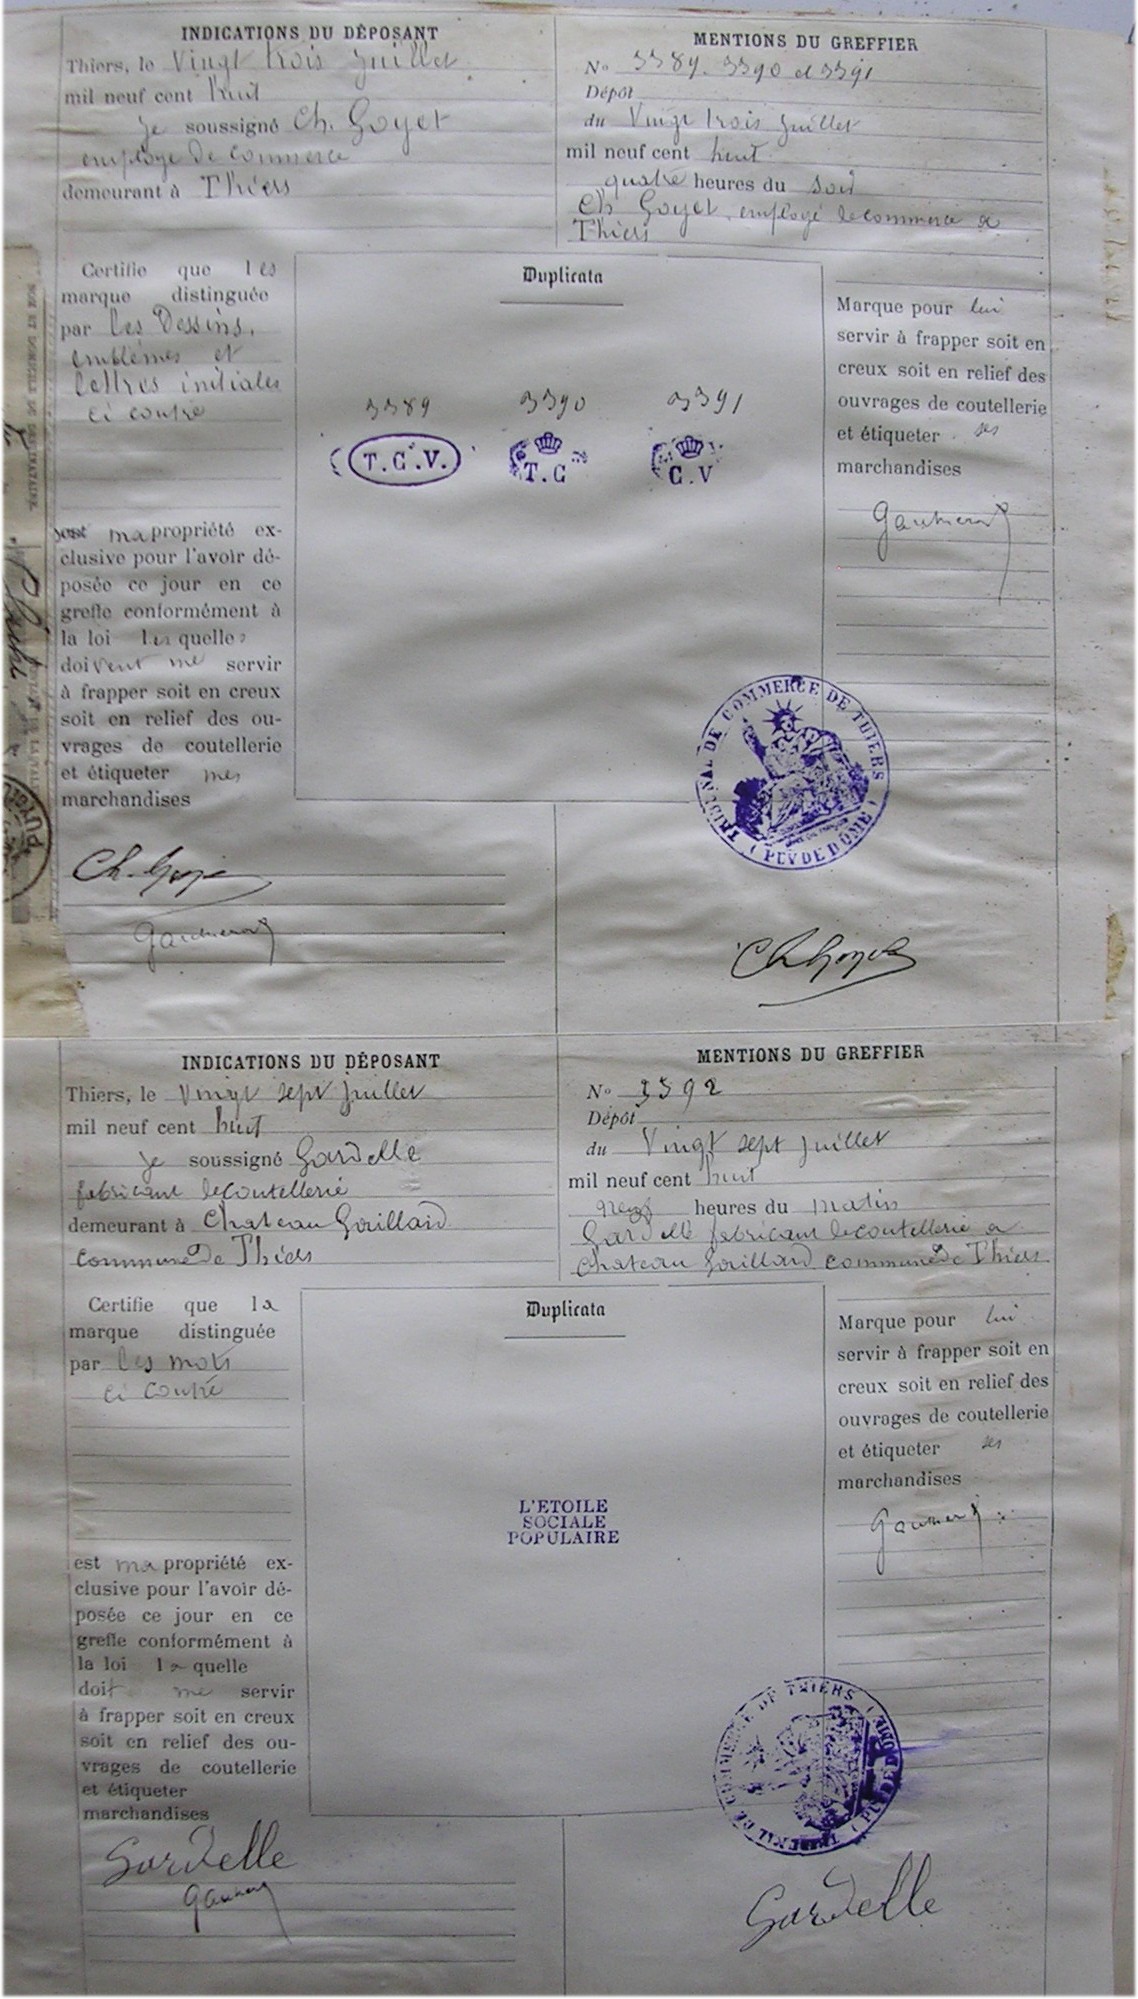 INDICATIONS DU DÉPOSANT
Thiers, le Vingt trois Juillet
mil neuf cent huit
je soussigné Ch. Goyet
employé de commerce
demeurant à Thiers
MENTIONS DU GREFFIER
No 3389. 3390 et 3391
Dépôt
du Vingt trois Juillet
mil neuf cent huit
quatre heures du soir
Ch Goyet employé de commerce a
Thiers
Certifie que les
marque distinguée
par les Dessins,
emblèmes et
lettres initiales
ci contre
sont ma propriété ex-
clusive pour l'avoir dé-
posée ce jour en ce
greffe conformément à
la loi les quelles
doivent me servir
à frapper soit en creux
soit en relief des ou-
vrages de coutellerie
et étiqueter mes
marchandises
Duplicata
3389 3390 3391
T.G.V. T.G G.V
Marque pour lui
servir à frapper soit en
creux soit en relief des
ouvrages de coutellerie
et étiqueter ses
marchandises
TRIBUNAL DE COMMERCE DE THIERS
(PUY DE DÔME)
Ch. Goyet
Ch Goyet
INDICATIONS DU DÉPOSANT
Thiers, le Vingt sept Juillet
mil neuf cent huit
je soussigné Gardelle
fabricant de coutellerie
demeurant à Chateau Gaillard
commune de Thiers
MENTIONS DU GREFFIER
No 3392
Dépôt
du Vingt sept Juillet
mil neuf cent huit
neuf heures du matin
Gardelle fabricant de coutellerie a
Chateau Gaillard commune de Thiers
Certifie que la
marque distinguée
par les mots
ci contre
est ma propriété ex-
clusive pour l'avoir dé-
posée ce jour en ce
greffe conformément à
la loi la quelle
doit me servir
à frapper soit en creux
soit en relief des ou-
vrages de coutellerie
et étiqueter
marchandises
Duplicata
L'ETOILE
SOCIALE
POPULAIRE
Marque pour lui
servir à frapper soit en
creux soit en relief des
ouvrages de coutellerie
et étiqueter ses
marchandises
TRIBUNAL DE COMMERCE DE THIERS
(PUY DE DÔME)
Gardelle
Gardelle